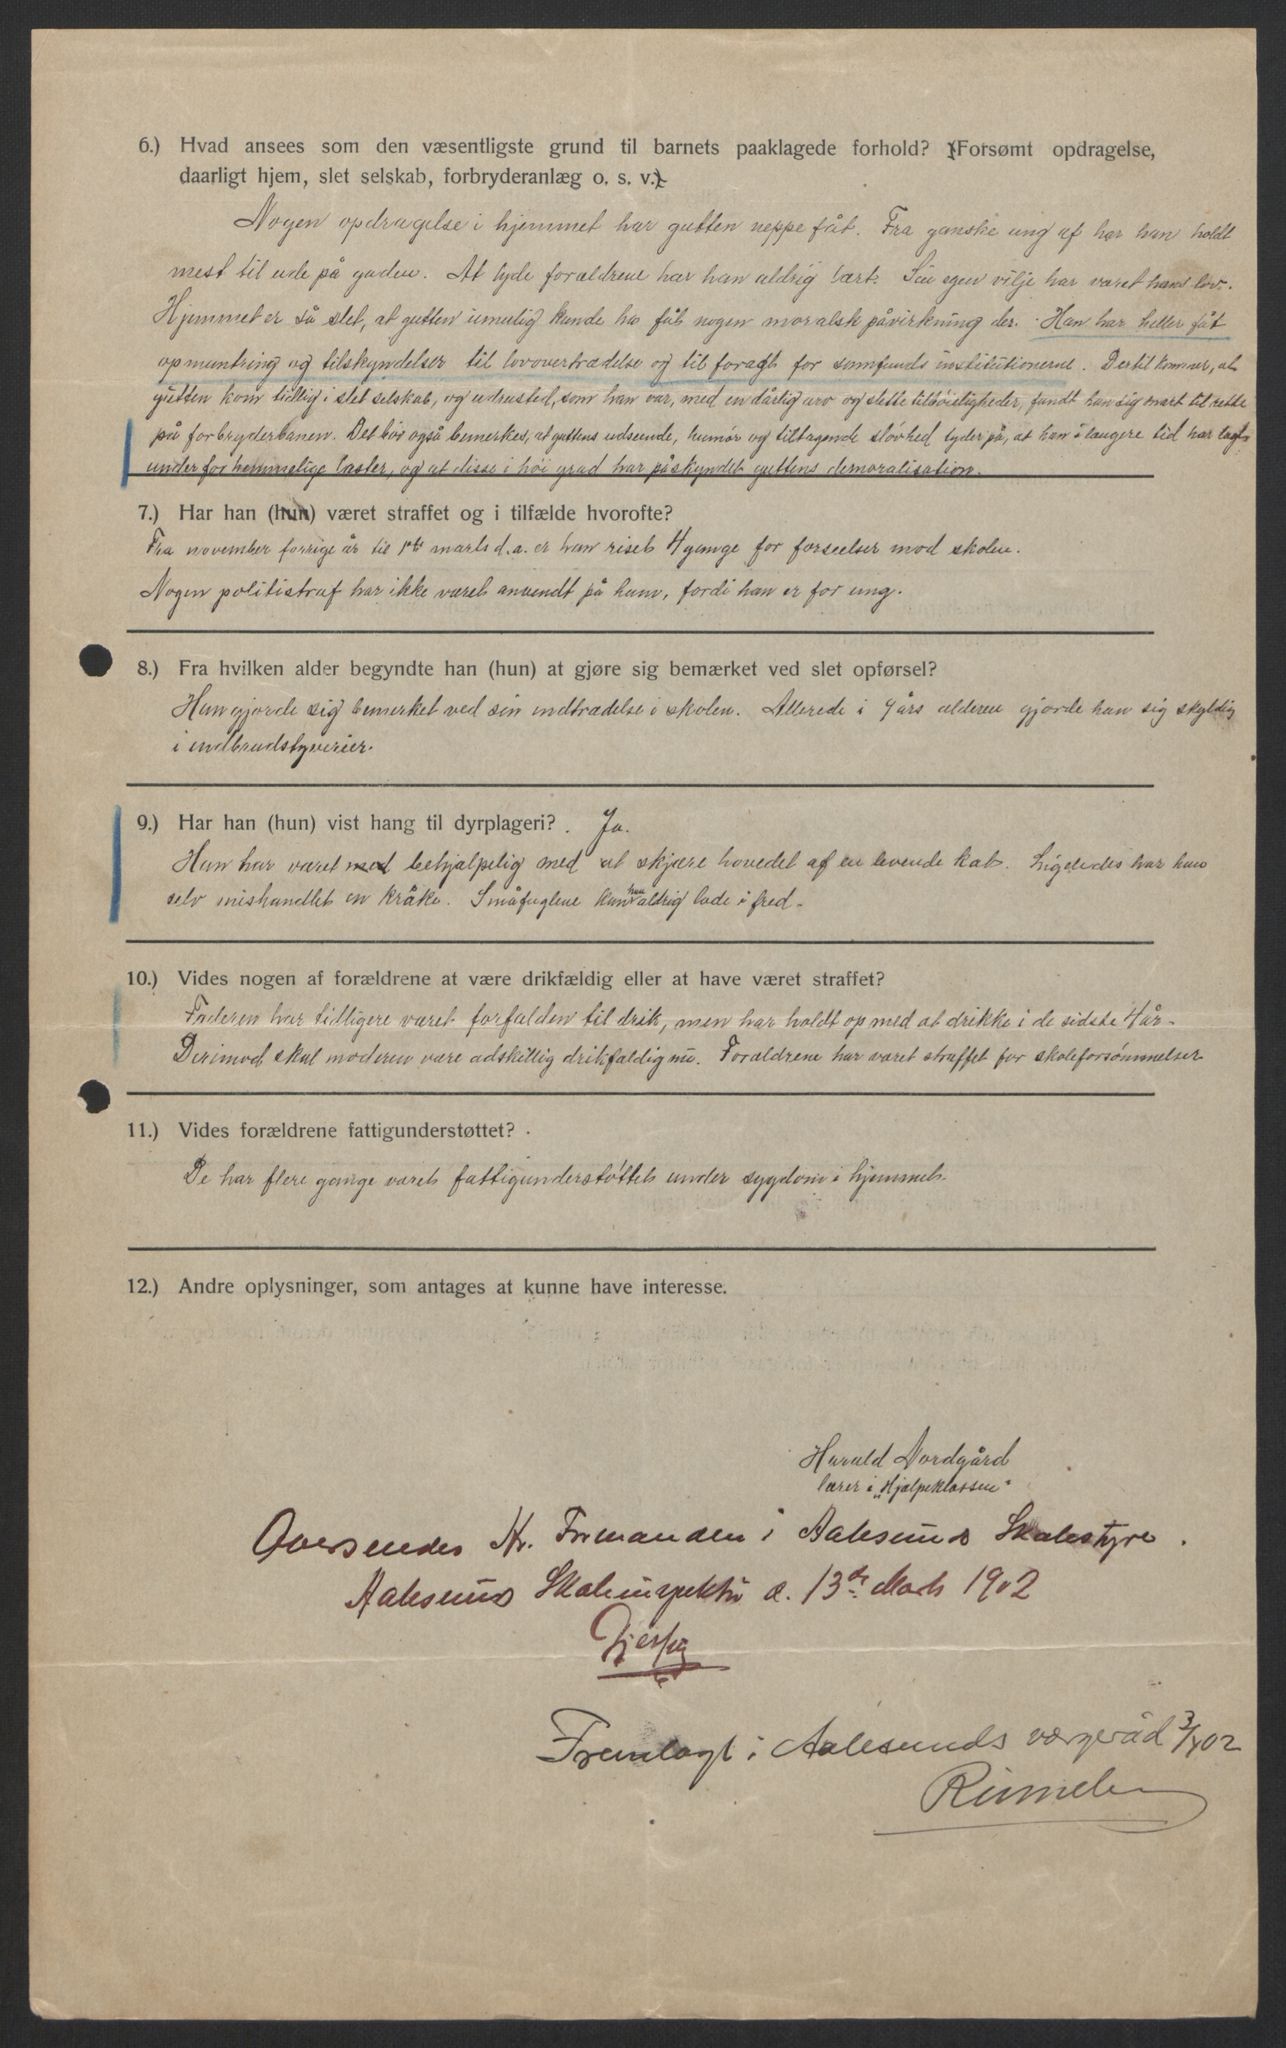 6.) Hvad ansees som den væsentligste grund til barnets paaklagede forhold? (Forsømt opdragelse,
daarligt hjem, slet selskab, forbryderanlæg o. s. v.).
Nogen opdragelse i hjemmet har gutten neppe fåt. Fra ganske ung af har han holdt
mest til ude på gaden. At lyde forældrene har han aldrig lært. Sin egen vilje har været hans lov.
Hjemmet er så slet, at gutten umulig kunde ha fåt nogen moralsk påvirkning der. Han har heller fåt
opmuntring og tilskyndelser til lovovertrædelse og til foragt for samfunds institutionerne. Dertil kommer, at
gutten kom tidlig i slet selskab, og udrusted, som han var, med en dårlig arv og slette tilbøieligheder, fandt han sig snart til rette
på forbryderbanen. Det bør også bemerkes, at guttens udseende, humør og tiltagende sløvhed tyder på, at han i længere tid har lagt
under for hemmelige laster, og at disse i høi grad har påskyndet guttens demoralisation.
7.) Har han (hun) været straffet og i tilfælde hvorofte?
Fra november forrige år til 1ste marts d.a. er han riset 4 gange for forseelser mod skolen.
Nogen politistraf har ikke været anvendt på ham, fordi han er for ung.
8.) Fra hvilken alder begyndte han (hun) at gjøre sig bemærket ved slet opførsel?
Han gjorde sig bemerket ved sin indtrædelse i skolen. Allerede i 9 års alderen gjorde han sig skyldig
i indbrudstyverier.
9.) Har han (hun) vist hang til dyrplageri? . Ja.
Han har været med behjælpelig med at skjære hovedet af en levende kat. Ligeledes har han
selv mishandlet en kråke. Småfuglene kan han aldrig lade i fred.
10.) Vides nogen af forældrene at være drikfældig eller at have været straffet?
Faderen har tidligere været forfalden til drik, men har holdt op med at drikke i de sidste 4 år.
Derimod skal moderen være adskillig drikfældig nu. Forældrene har været straffet for skoleforsømmelser
11.) Vides forældrene fattigunderstøttet? .
De har flere gange været fattigunderstøttet under sygdom i hjemmet.
12.) Andre oplysninger, som antages at kunne have interesse.
Harald Nordgård
lærer i "Hjælpeklassen"
Oversendes Hr. Formanden i Aalesunds Skolestyre.
Aalesunds Skoleinspektør d. 13de Marts 1902
Fremlagt i Aalesunds vergeråd 3/ 02